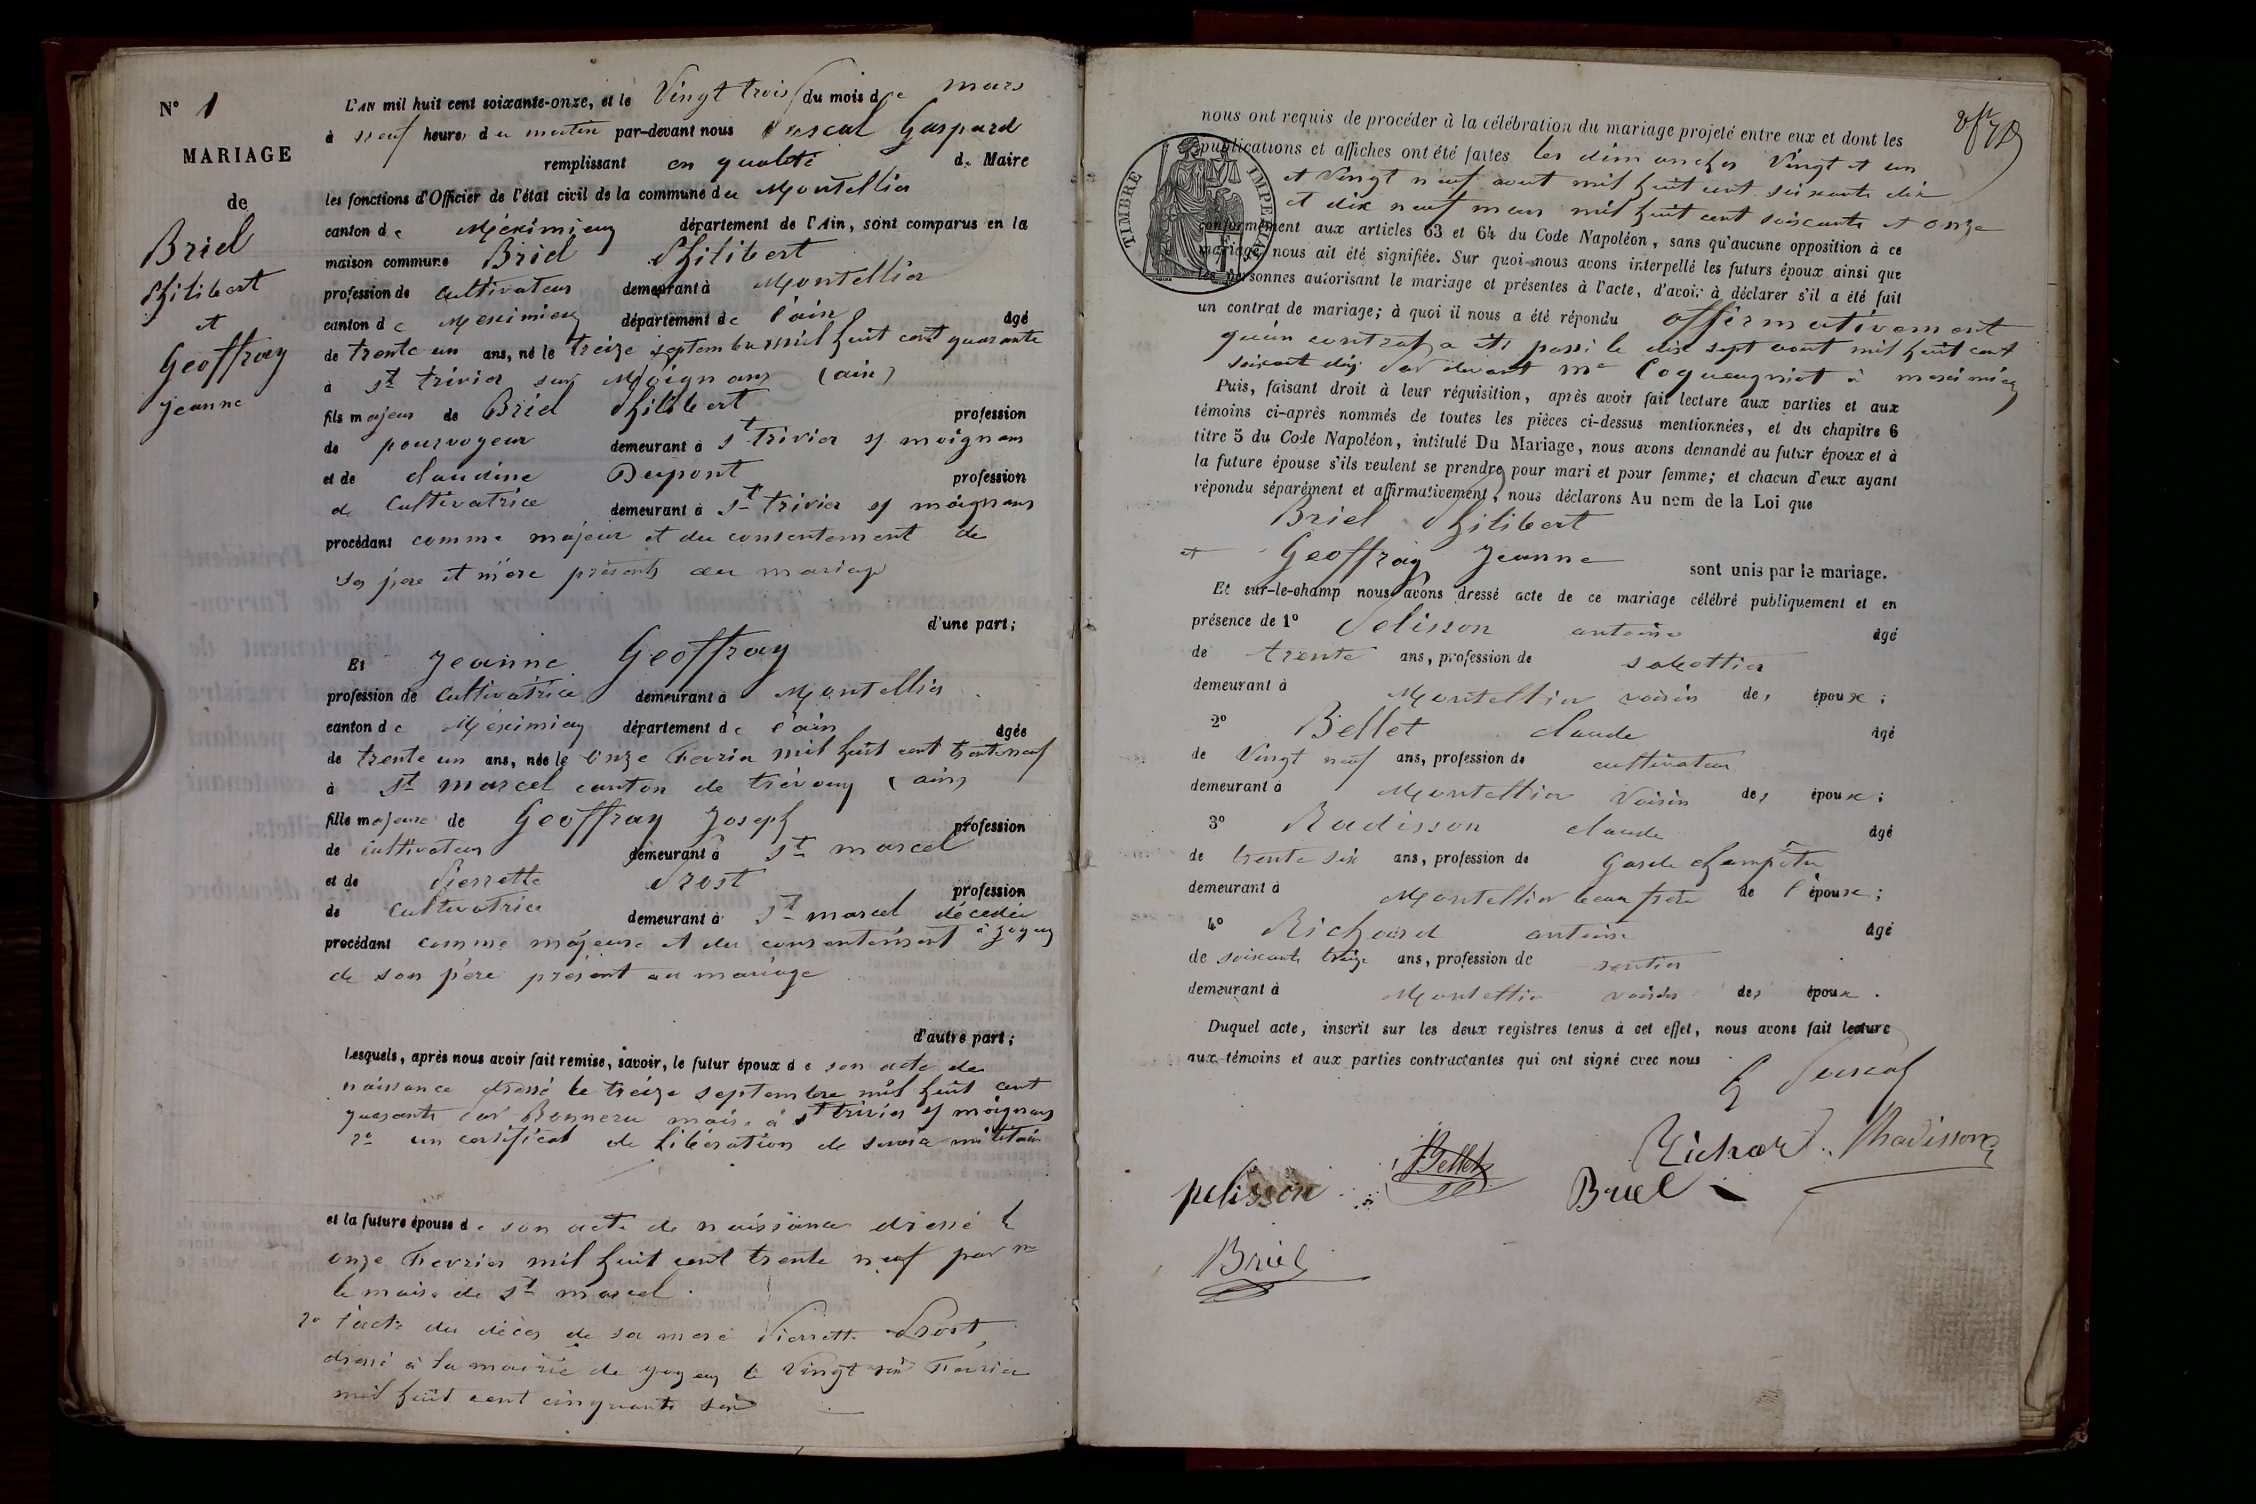 N° 1
MARIAGE
de
Briel
Philibert
et
Geoffray
Jeanne
L'AN mil huit cent soixante-onze, et le Vingt trois du mois de mars
à neuf heures du matin par-devant nous Pascal Gaspard
remplissant en qualité de Maire
les fonctions d'Officier de l'état civil de la commune du Montellier
canton de Meximieux département de l'Ain, sont comparus en la
maison commune Briel Philibert
profession de cultivateur demeurant à Montellier
canton de Meximieux département de l'ain âgé
de trente un ans, né le treize septembre mil huit cent quarante
à st trivier sur Moignans (ain)
fils majeur de Briel Philibert profession
de pourvoyeur demeurant à st trivier s/ moignans
et de claudine Dupont profession
de Cultivatrice demeurant à st trivier s/ moignans
procédant comme majeur et du consentement de
ses père et mère présents au mariage
d'une part;
Et Jeanne Geoffray
profession de cultivatrice demeurant à Montellier
canton de Méximieux département de l'ain âgée
de trente un ans, née le onze Fevrier mil huit cent trente neuf
à st marcel canton de trévoux (ain)
fille majeure de Geoffray Joseph profession
de cultivateur demeurant à st marcel
et de Pierrette Prost profession
de Cultivatrice demeurant à st marcel décedée
procédant comme majeure et du consentement à Joyeux
de son père présent au mariage
d'autre part;
Lesquels, après nous avoir fait remise, savoir, le futur époux de son acte de
naissance dressé le treize septembre mil huit cent
quarante par maire à st trivier s/ moignans
2° un certificat de libération de service militaire
et la future épouse de son acte de naissance dressé le
onze Fevrier mil huit cent trente neuf par mr
le maire de st marcel.
2° l'acte du décès de sa mere Pierrette Prost,
dressé à la mairie de Joyeux le Vingt six Fevrier
mil huit cent cinquante six
nous ont requis de procéder à la célébration du mariage projeté entre eux et dont les
publications et affiches ont été faites les dimanches Vingt et un
et Vingt neuf aout mil huit cent soixante dix
et dix neuf mars mil huit cent soixante et onze
conformément aux articles 63 et 64 du Code Napoléon, sans qu'aucune opposition à ce
mariage nous ait été signifiée. Sur quoi nous avons interpellé les futurs époux ainsi que
les personnes autorisant le mariage et présentes à l'acte, d'avoir à déclarer s'il a été fait
un contrat de mariage; à quoi il nous a été répondu affirmativement
qu'un contrat a été passé le dix sept aout mil huit cent
soixante dix par devant me Coqueugniot à meximieux
Puis, faisant droit à leur réquisition, après avoir fait lecture aux parties et aux
témoins ci-après nommés de toutes les pièces ci-dessus mentionnées, et du chapitre 6
titre 5 du Code Napoléon, intitulé Du Mariage, nous avons demandé au futur époux et à
la future épouse s'ils veulent se prendre pour mari et pour femme; et chacun d'eux ayant
répondu séparément et affirmativement, nous déclarons Au nom de la Loi que
Briel Philibert
et Geoffray Jeanne sont unis par le mariage.
Et sur-le-champ nous avons dressé acte de ce mariage célébré publiquement et en
présence de 1° Pelisson antoine âgé
de trente ans, profession de sabottier
demeurant à Montellier voisin des époux;
2° Bellet claude âgé
de Vingt neuf ans, profession de cultivateur
demeurant à Montellier Voisin des époux;
3° Radisson claude âgé
de trente six ans, profession de Garde champêtre
demeurant à Montellier beau frère de l'épouse;
4° Richard antoine âgé
de soixante treize ans, profession de rentier
demeurant à Montellier voisin des époux.
Duquel acte, inscrit sur les deux registres tenus à cet effet, nous avons fait lecture
aux témoins et aux parties contractantes qui ont signé avec nous
G Pascal
Richard Rhadisson
Bellet
pelisson Briel
Briel
TIMBRE IMPERIAL